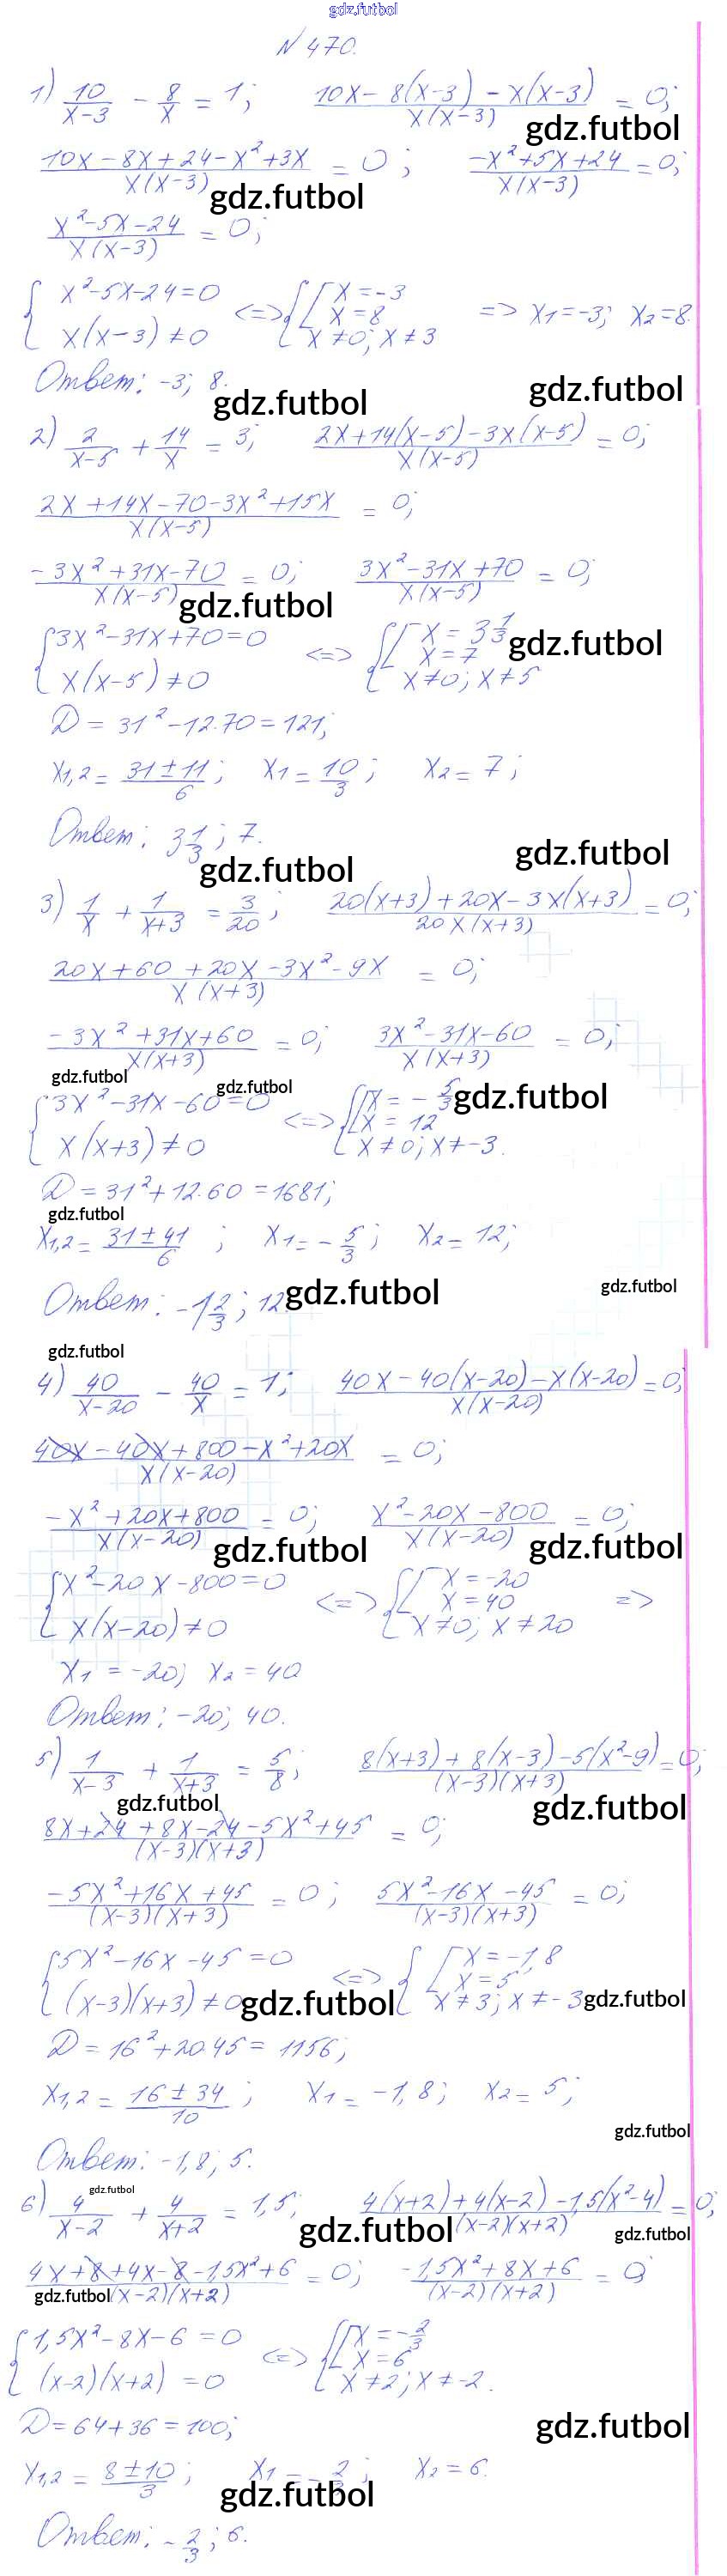 gdz.futbol
N 470.
1) 10/(x-3) - 8/x = 1; (10x-8(x-3)-x(x-3))/(x(x-3)) = 0;
gdz.futbol
(10x-8x+24-x²+3x)/(x(x-3)) = 0; (-x²+5x+24)/(x(x-3)) = 0;
gdz.futbol
(x²-5x-24)/(x(x-3)) = 0;
{ x²-5x-24=0 <=> { [ x=-3
x(x-3)≠0 x=8 => x₁=-3; x₂=8.
x≠0; x≠3
Ответ: -3; 8.
gdz.futbol gdz.futbol
2) 2/(x-5) + 14/x = 3; (2x+14(x-5)-3x(x-5))/(x(x-5)) = 0;
(2x+14x-70-3x²+15x)/(x(x-5)) = 0;
(-3x²+31x-70)/(x(x-5)) = 0; (3x²-31x+70)/(x(x-5)) = 0;
gdz.futbol
{ 3x²-31x+70=0 <=> { [ x=3 1/3
gdz.futbol
x(x-5)≠0 x=7
x≠0; x≠5
D = 31²-12·70=121;
x₁,₂ = (31±11)/6; x₁ = 10/3; x₂ = 7;
Ответ: 3 1/3; 7.
gdz.futbol gdz.futbol
3) 1/x + 1/(x+3) = 3/20; (20(x+3)+20x-3x(x+3))/(20x(x+3)) = 0;
(20x+60+20x-3x²-9x)/(x(x+3)) = 0;
(-3x²+31x+60)/(x(x+3)) = 0; (3x²-31x-60)/(x(x+3)) = 0;
gdz.futbol gdz.futbol gdz.futbol
{ 3x²-31x-60=0 <=> { [ x=-5/3
x(x+3)≠0 x=12
x≠0; x≠-3.
D = 31²+12·60=1681;
gdz.futbol
x₁,₂ = (31±41)/6; x₁ = -5/3; x₂ = 12;
Ответ: -1 2/3; 12.
gdz.futbol gdz.futbol
gdz.futbol
4) 40/(x-20) - 40/x = 1; (40x-40(x-20)-x(x-20))/(x(x-20)) = 0;
(40x-40x+800-x²+20x)/(x(x-20)) = 0;
(-x²+20x+800)/(x(x-20)) = 0; (x²-20x-800)/(x(x-20)) = 0;
gdz.futbol gdz.futbol
{ x²-20x-800=0 <=> { [ x=-20
x(x-20)≠0 x=40 =>
x≠0; x≠20
x₁ = -20; x₂ = 40
Ответ: -20; 40.
5) 1/(x-3) + 1/(x+3) = 5/8; (8(x+3)+8(x-3)-5(x²-9))/((x-3)(x+3)) = 0;
gdz.futbol gdz.futbol
(8x+24+8x-24-5x²+45)/((x-3)(x+3)) = 0;
(-5x²+16x+45)/((x-3)(x+3)) = 0; (5x²-16x-45)/((x-3)(x+3)) = 0;
{ 5x²-16x-45=0 <=> { [ x=-1,8
(x-3)(x+3)≠0 x=5
x≠3; x≠-3
gdz.futbol gdz.futbol
D = 16²+20·45 = 1156;
x₁,₂ = (16±34)/10; x₁ = -1,8; x₂ = 5;
gdz.futbol
Ответ: -1,8; 5.
gdz.futbol
6) 4/(x-2) + 4/(x+2) = 1,5; (4(x+2)+4(x-2)-1,5(x²-4))/((x-2)(x+2)) = 0;
gdz.futbol gdz.futbol
(4x+8+4x-8-1,5x²+6)/((x-2)(x+2)) = 0; (-1,5x²+8x+6)/((x-2)(x+2)) = 0
gdz.futbol
{ 1,5x²-8x-6=0 <=> { [ x=-2/3
(x-2)(x+2)=0 x=6
x≠2; x≠-2.
D=64+36=100;
gdz.futbol
x₁,₂ = (8±10)/3; x₁ = -2/3; x₂ = 6.
gdz.futbol
Ответ: -2/3; 6.